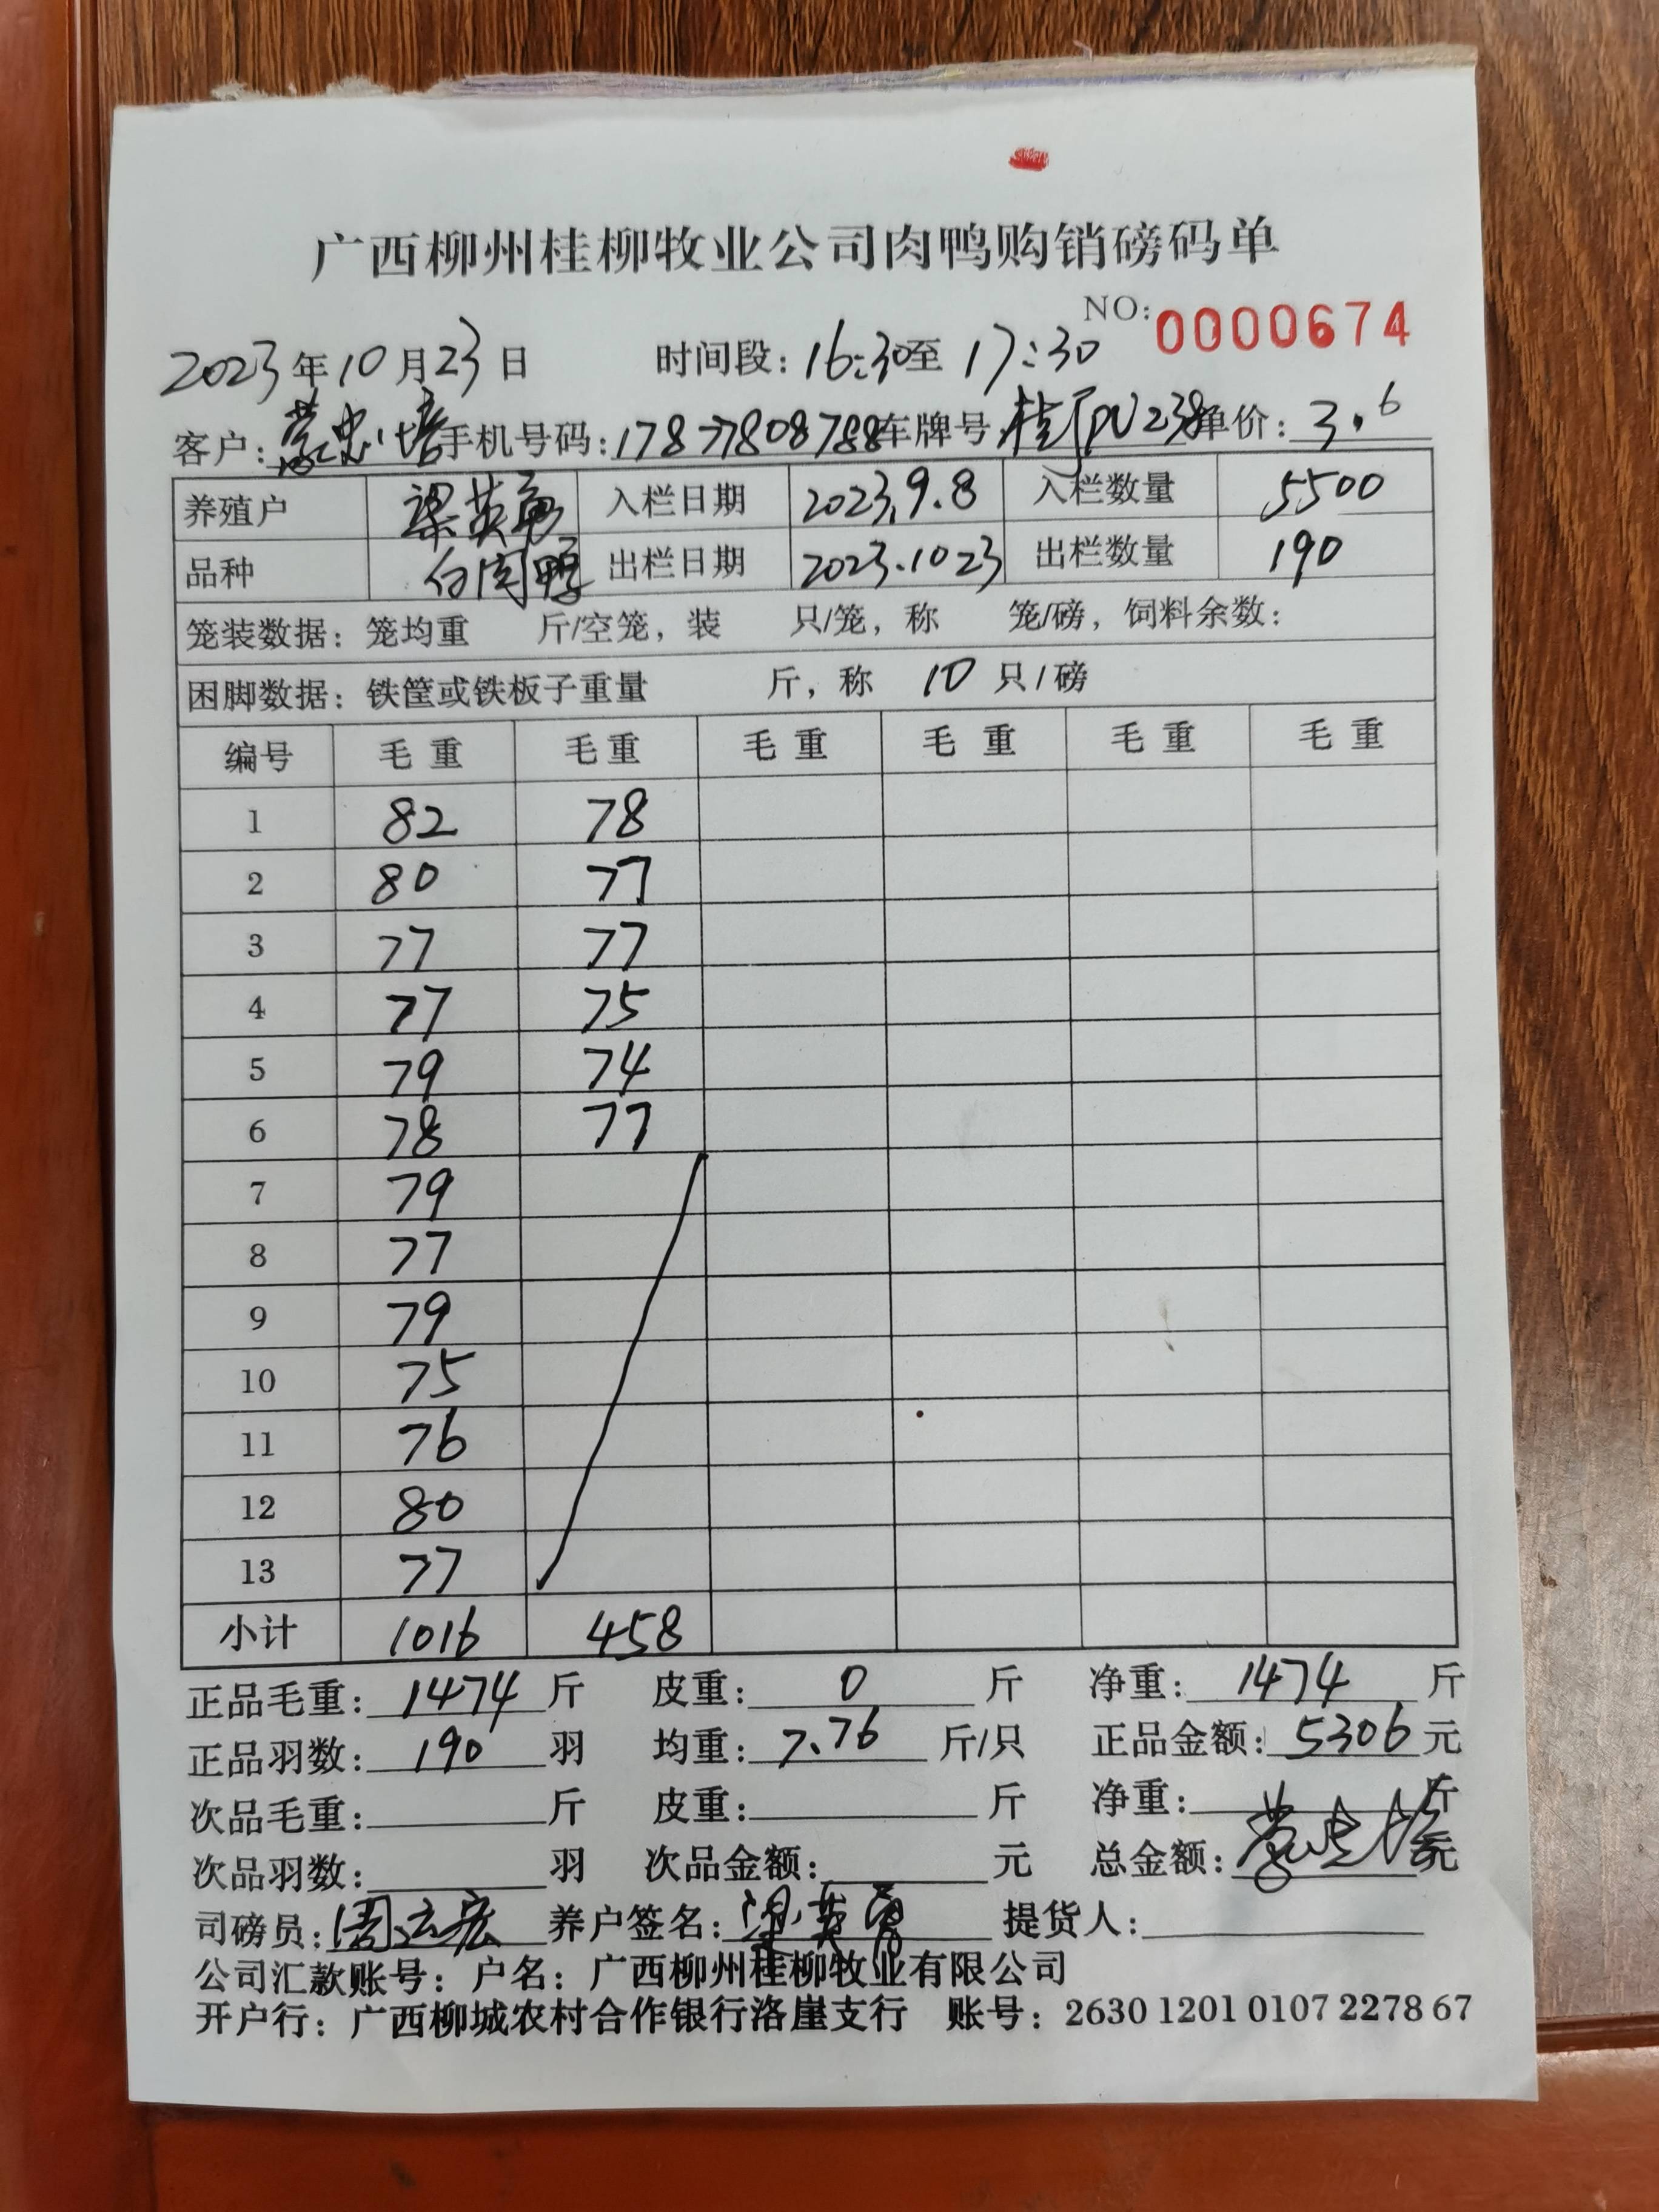 广西柳州桂柳牧业公司肉鸭购销磅码单
NO:0000674
2023年10月23日 时间段:16:30至17:30
客户:蒙忠培 手机号码:17877808788 车牌号 单价:3.6
养殖户 梁英勇 入栏日期 2023.9.8 入栏数量 5500
品种 白肉鸭 出栏日期 2023.10 23 出栏数量 190
笼装数据:笼均重 斤/空笼,装 只/笼,称 笼/磅,饲料余数:
困脚数据:铁筐或铁板子重量 斤,称 10 只/磅
编号 毛重 毛重 毛重 毛重 毛重 毛重
1 82 78
2 80 77
3 77 77
4 77 75
5 79 74
6 78 77
7 79
8 77
9 79
10 75
11 76
12 80
13 77
小计 1016 458
正品毛重:1474斤 皮重:0斤 净重:1474斤
正品羽数:190羽 均重:7.76斤/只 正品金额:5306元
次品毛重:斤 皮重:斤 净重:斤
次品羽数:羽 次品金额:元 总金额:蒙忠培元
司磅员: 养户签名:梁英勇 提货人:
公司汇款账号:户名:广西柳州桂柳牧业有限公司
开户行:广西柳城农村合作银行洛崖支行 账号:2630 1201 0107 2278 67